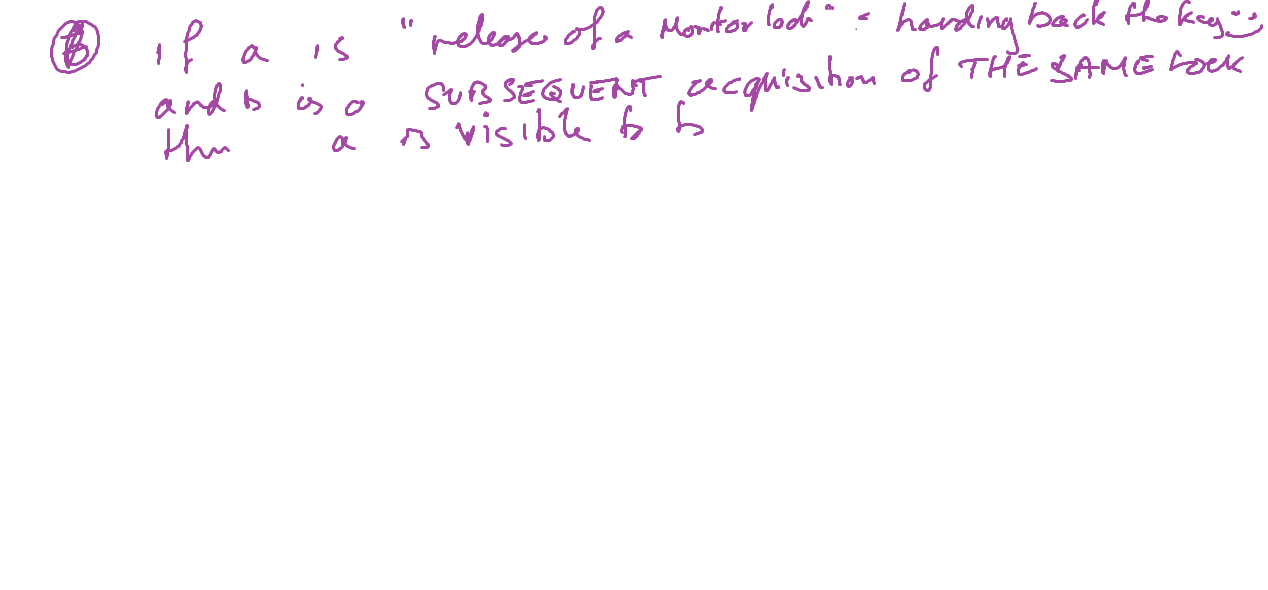 B if a is "release of a Monitor lock" = handing back the key :)
and b is a SUBSEQUENT acquisition of THE SAME LOCK
then a is visible to b